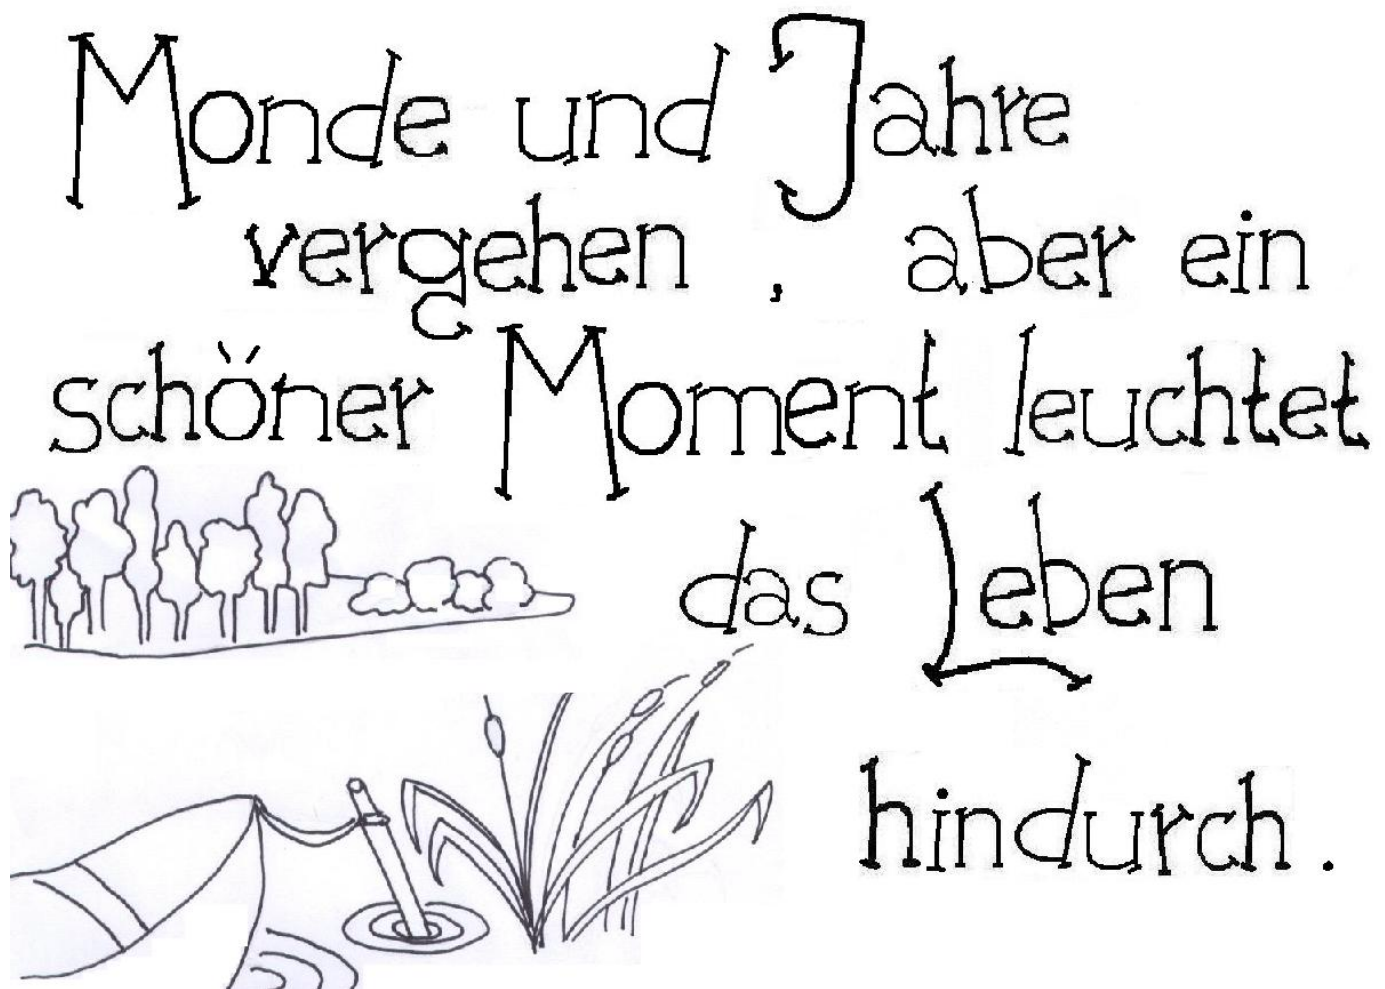 Monde und Jahre
vergehen , aber ein
schöner Moment leuchtet
das Leben
hindurch .